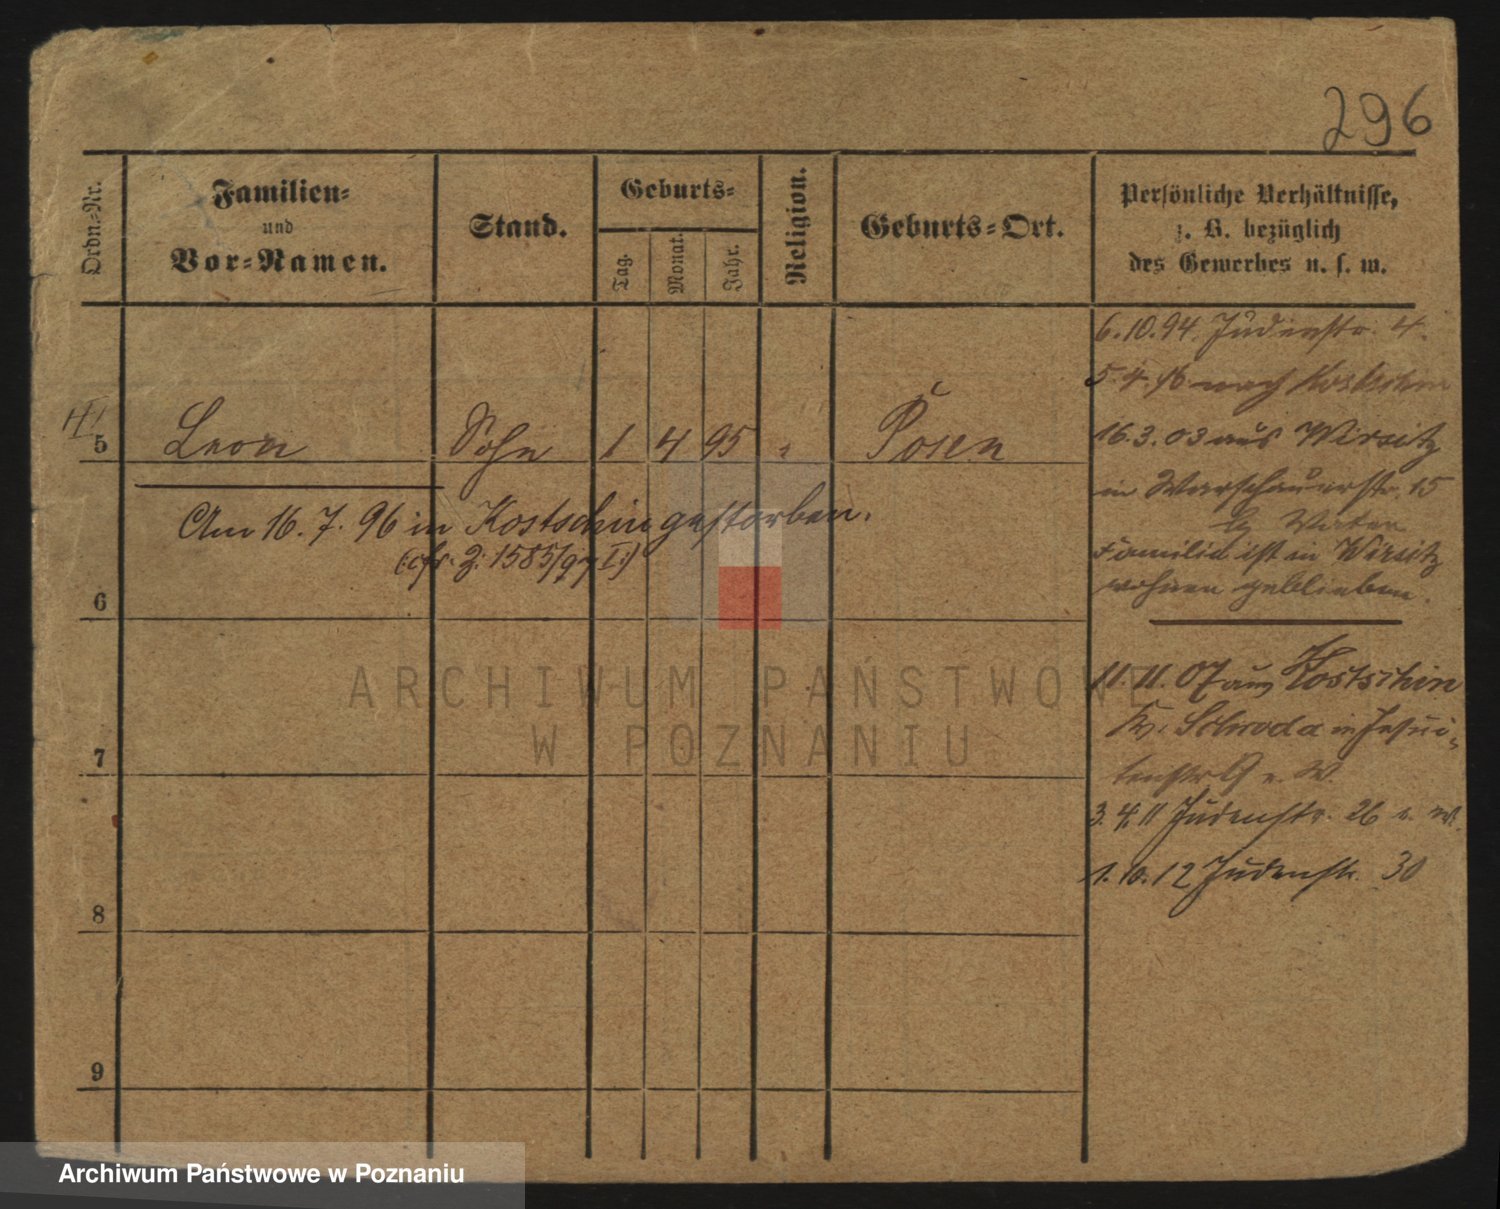 296
Ordn=Nr.
Familien=
und
Vor=Namen.
Stand.
Geburts=
Tag.
Monat.
Jahr.
Religion.
Geburts=Ort.
Persönliche Verhältnisse,
z. B. bezüglich
des Gewerbes u. s. w.
5 Leon Sohn 1 4 95 " Posen
Am 16. 7. 96 in Kostschin gestorben.
(cfr. J. 1585/97 I.)
6
7
8
9
6.10.94. Judenstr. 4.
5.4.96 nach Kostschin
16.3.03 aus Wirsitz
in Warschauerstr. 15
Familie ist in Wirsitz
wohnen geblieben.
11.11.07 aus Kostschin
Kr. Schroda in Jesui=
tenstr 9
3.4.11 Judenstr. 26
1.10.12 Judenstr. 30
ARCHIWUM PAŃSTWOWE
W POZNANIU
Archiwum Państwowe w Poznaniu